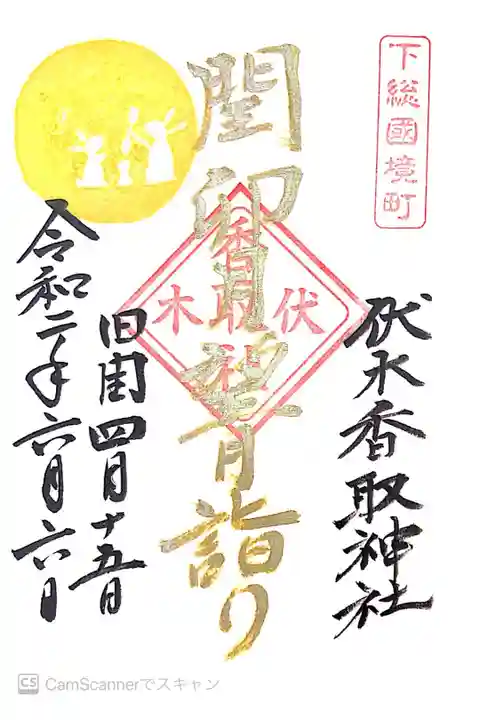 下総國境町
伏木香取神社
閏卯月望月詣り
伏木
香取社
旧閏四月十五日
令和二年六月六日
CS CamScannerでスキャン